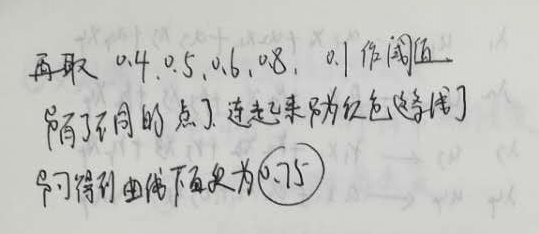 再取 0.4、0.5、0.6、0.8、0.1作阈值
即有了不同的点了.连起来即为红色这条线了
即可得到曲线下面积为0.75